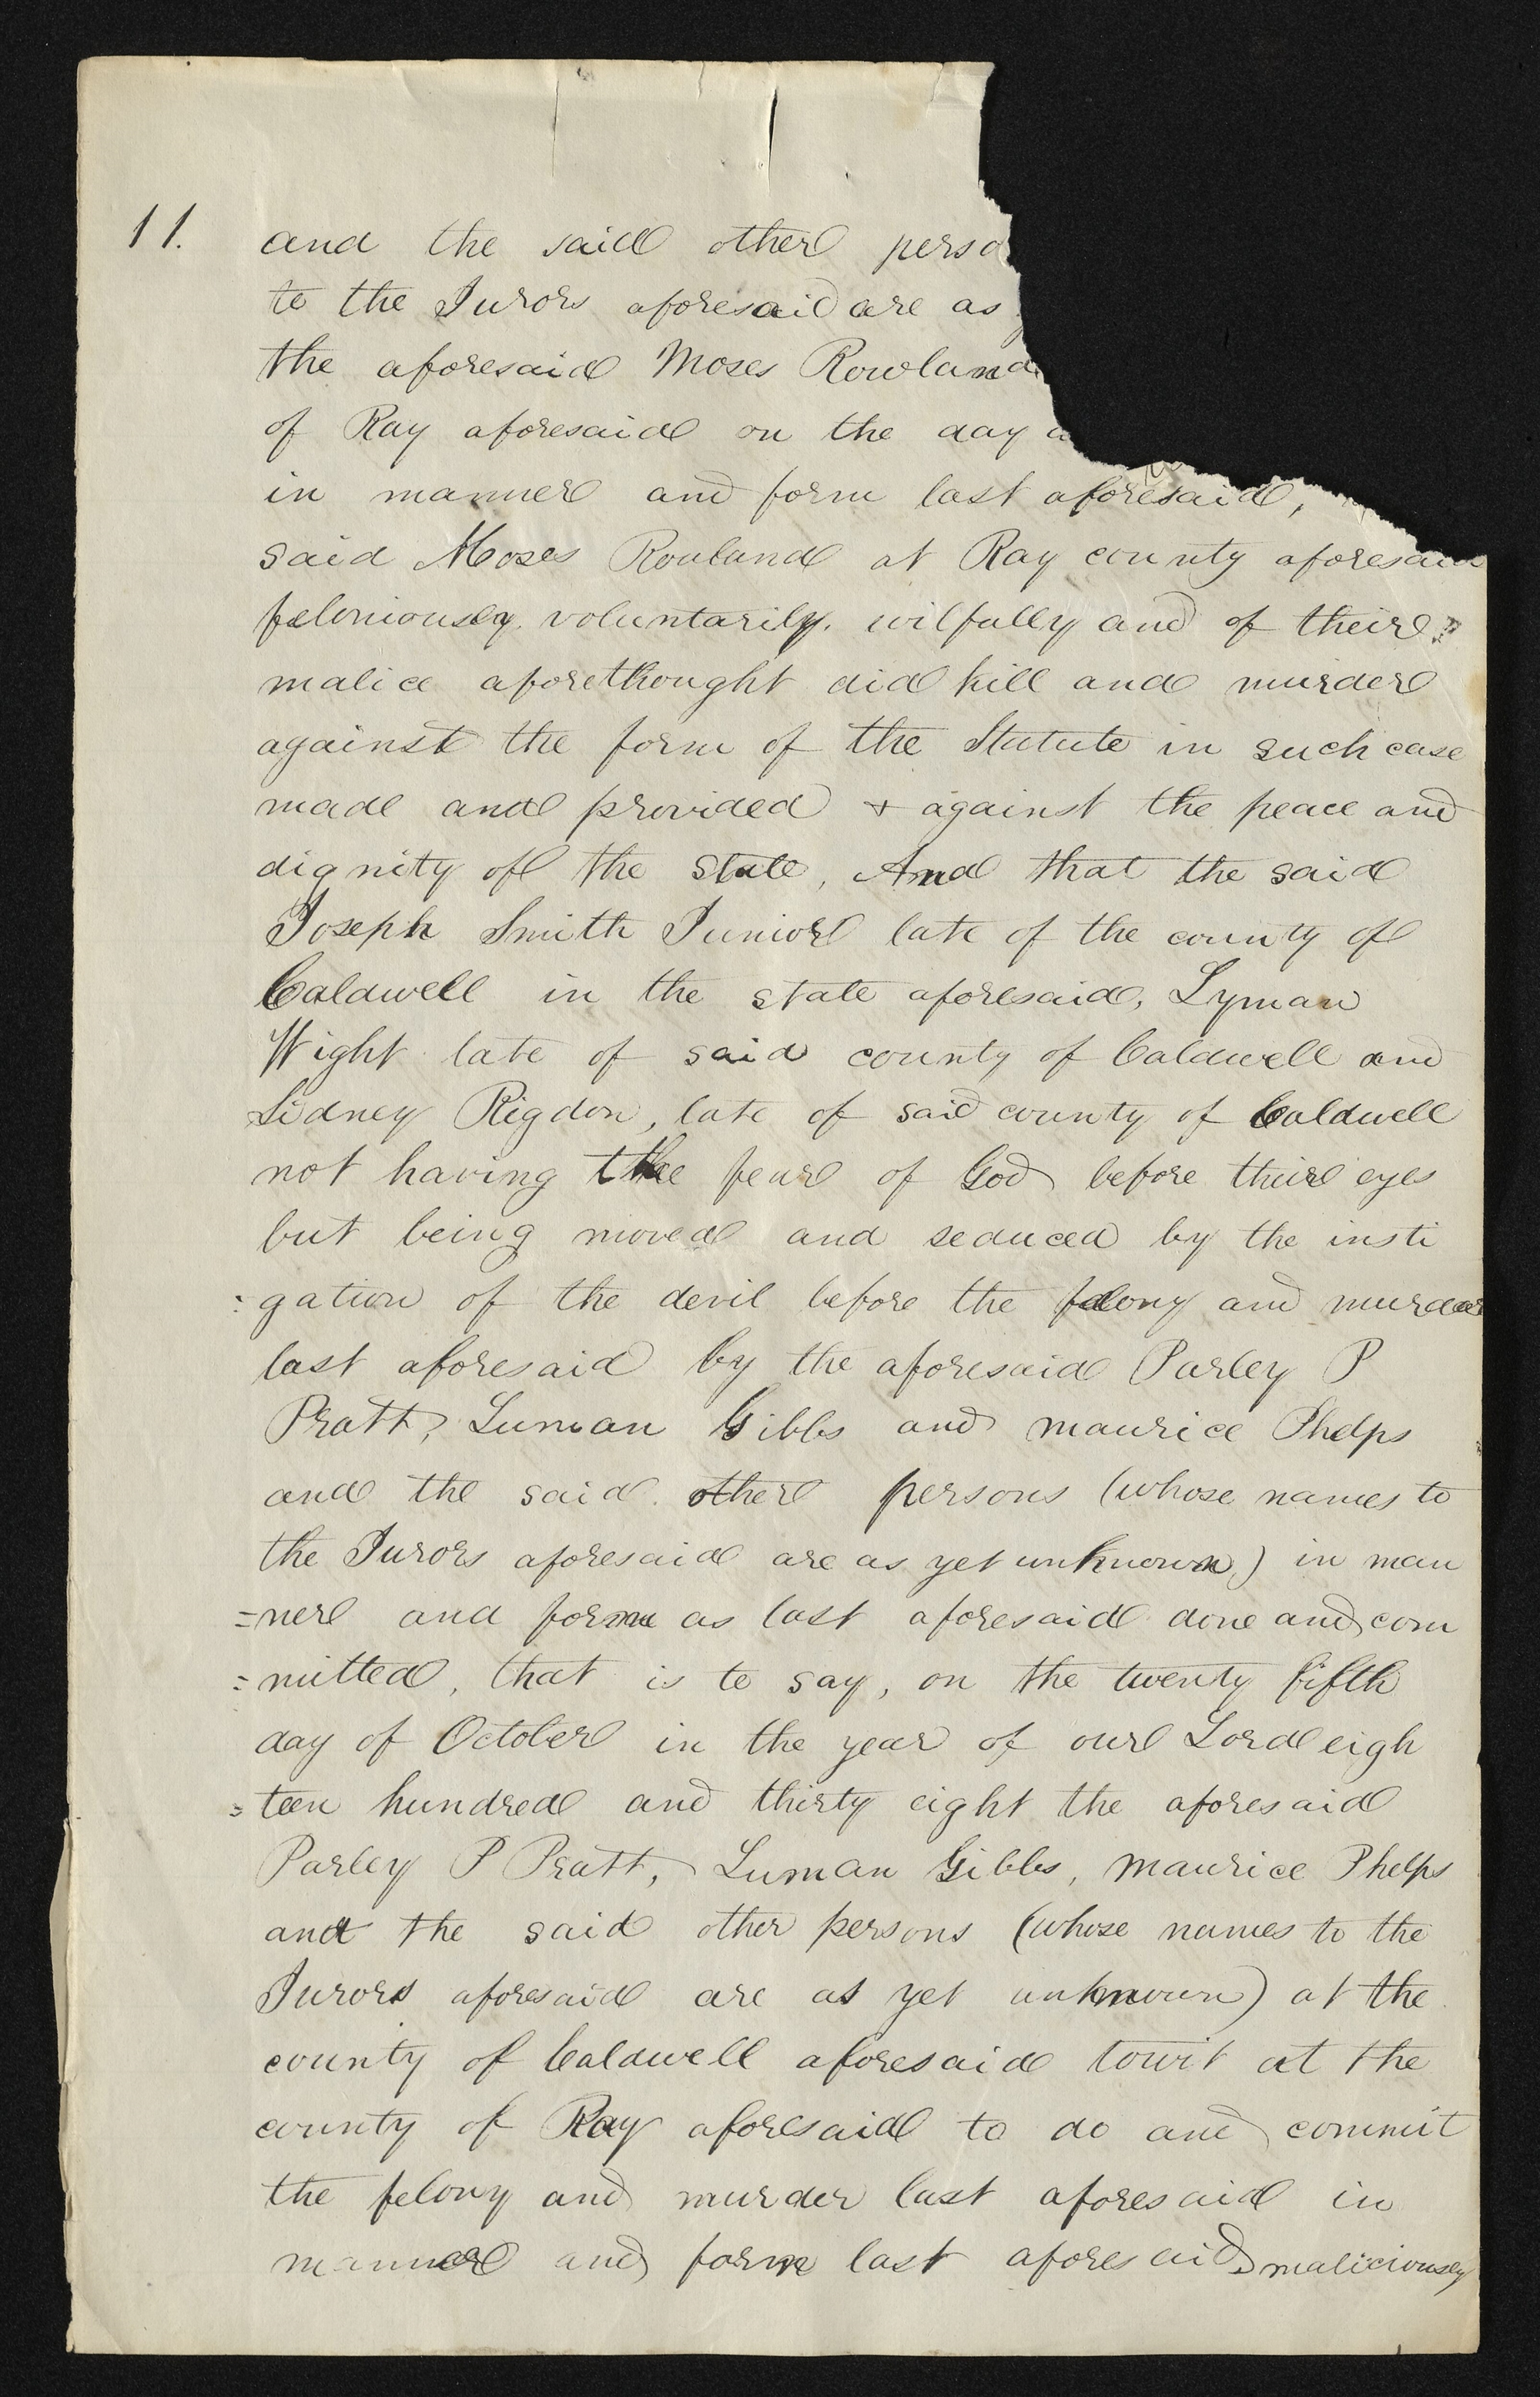 11. and the said other perso
to the Jurors aforesaid are as
the aforesaid Moses Rowland
of Ray aforesaid on the day a
in manner and form last aforesaid,
said Moses Rowland at Ray county aforesaid
feloniously. voluntarily. wilfully and of their
malice aforethought did kill and murder
against the form of the Statute in such case
made and provided + against the peace and
dignity of the State, And that the said
Joseph Smith Junior late of the county of
Caldwell in the state aforesaid, Lyman
Wight late of said county of Caldwell and
Sidney Rigdon, late of said county of Caldwell
not having the fear of God before their eyes
but being moved and seduced by the insti
:gation of the devil before the felony and murder
last aforesaid by the aforesaid Parley P
Pratt, Luman Gibbs and Maurice Phelps
and the said other persons (whose names to
the Jurors aforesaid are as yet unknown) in man
=ner and form as last aforesaid done and com
=mitted, that is to say, on the twenty fifth
day of October in the year of our Lord eigh
=teen hundred and thirty eight the aforesaid
Parley P Pratt, Luman Gibbs, Maurice Phelps
and the said other persons (whose names to the
Jurors aforesaid are as yet unknown) at the
county of Caldwell aforesaid towit at the
county of Ray aforesaid to do and commit
the felony and murder last aforesaid in
manner and form last aforesaid maliciously